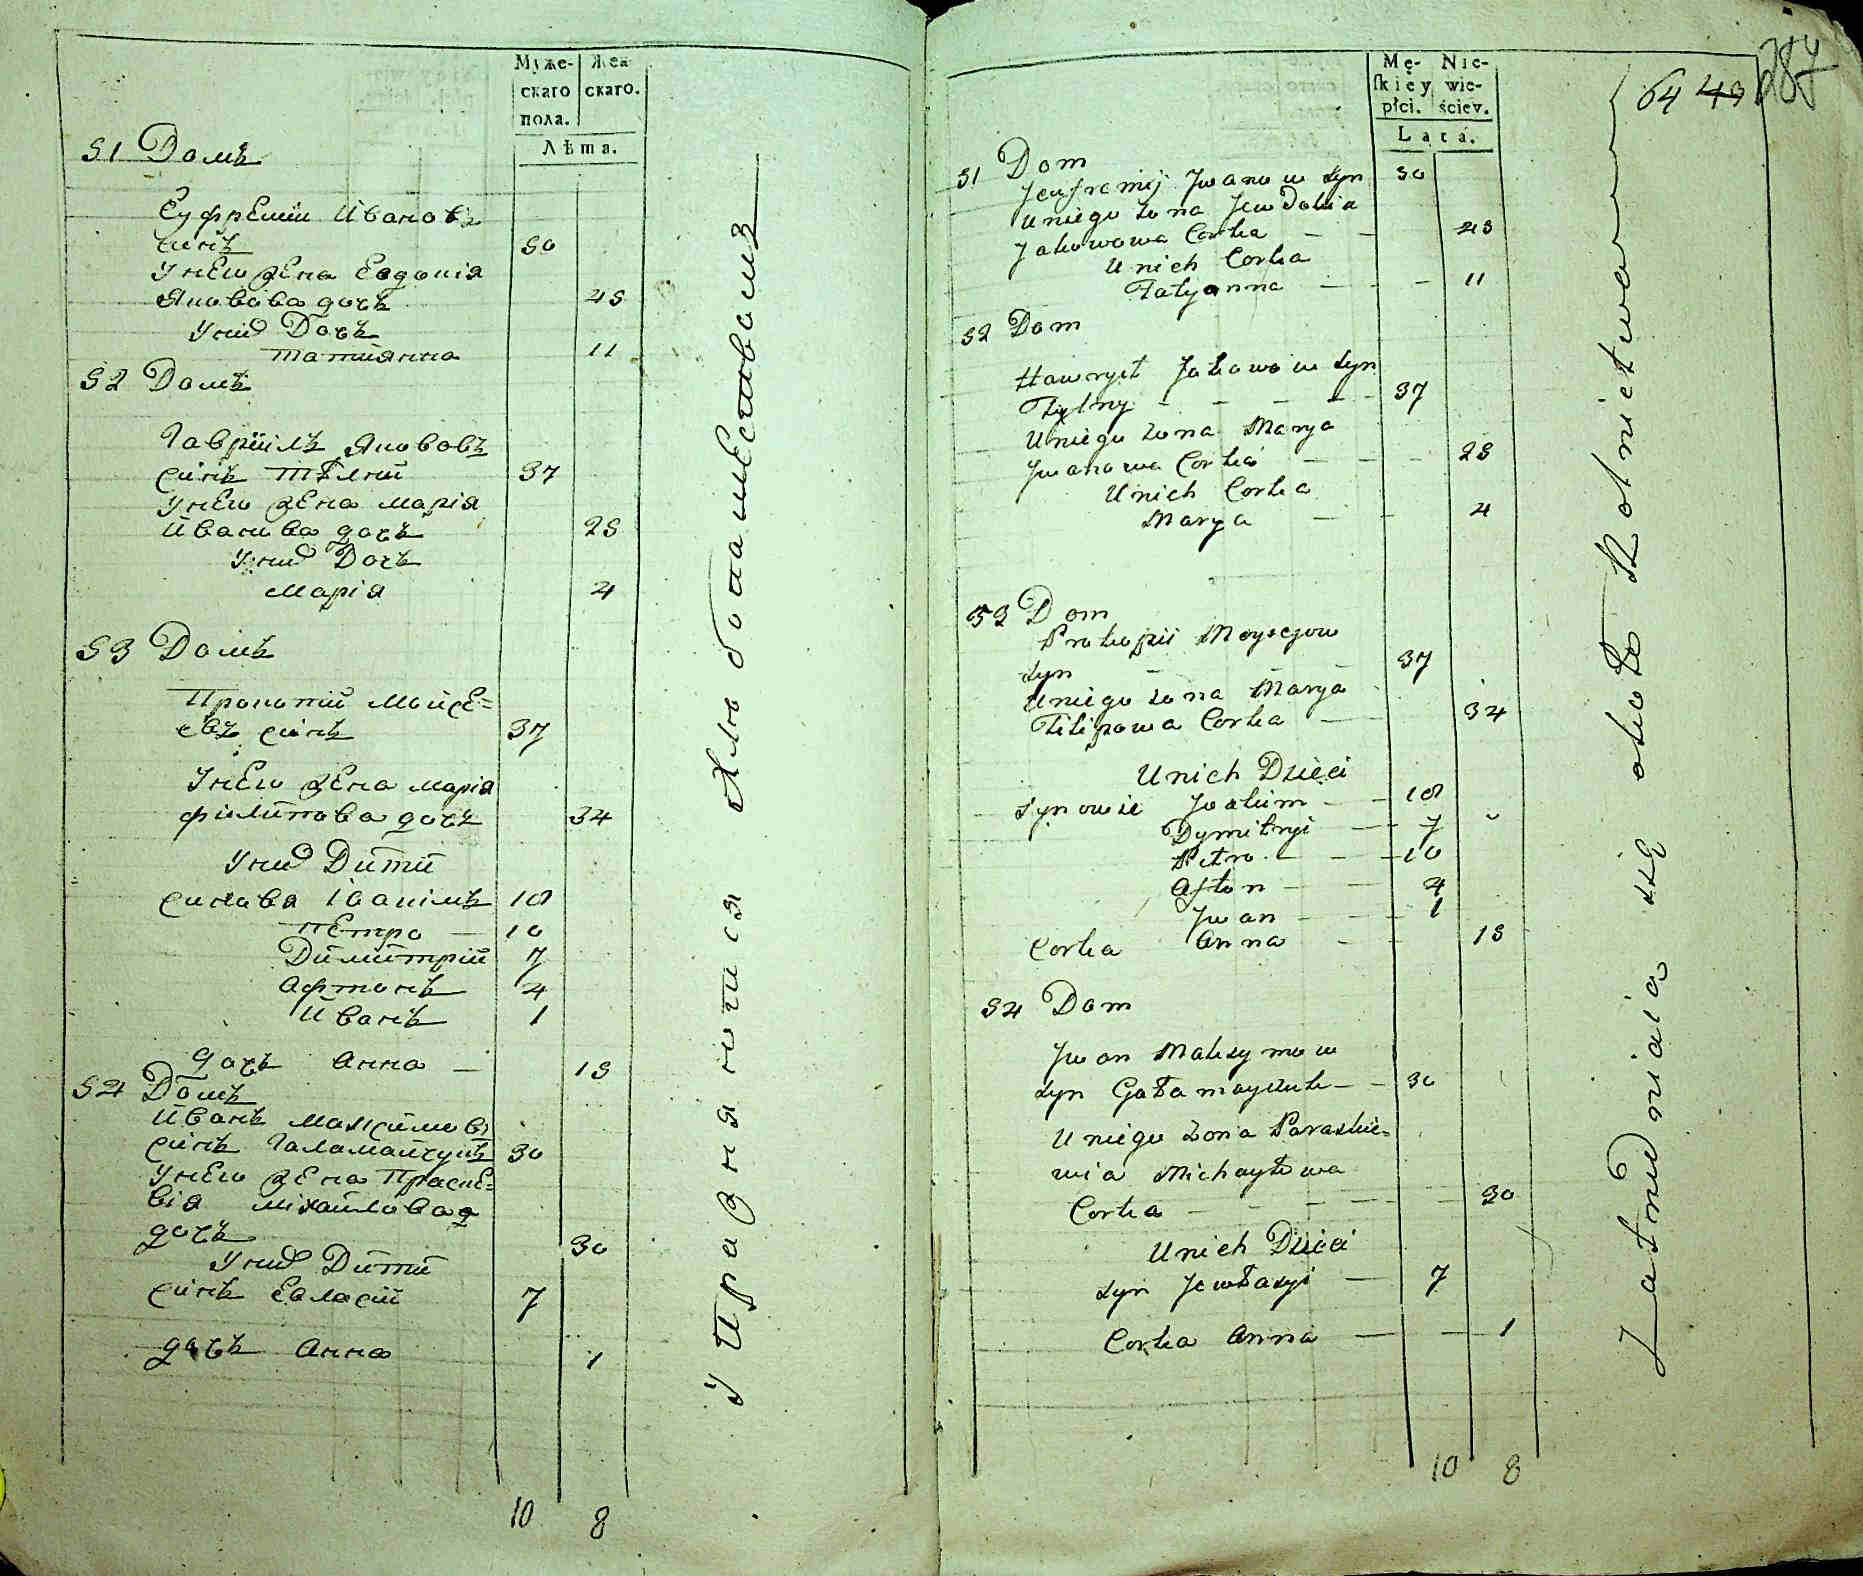 Муже-
скаго
пола.
Жен
скаго.
Лѣта.
51 Домъ
Еуфремiи Ивановъ
синъ 50
У него жена Евдокiя
Яковова дочъ 45
У них Дочъ
Татиянна 11
52 Домъ
Гаврiилъ Якововъ
синъ Тѣлни 37
У него жена Марiя
Иванова дочъ 25
У них Дочъ
Марiя 4
53 Домъ
Прокопiй Мойсе=
евъ синъ 37
У него жена Марiя
Филипова дочъ 34
У них Дити
синовя Iоакiмъ 18
Петро — 10
Димитрiй 7
Афтонъ 4
Иванъ 1
дочъ Анна — 15
54 Домъ
Иванъ Максимов
синъ Галамайчукъ 30
У него жена Праске=
вiя Мiхайлова
дочъ 30
У них Дити
синъ Евласiй 7
дочъ Анна 1
10 8
Упразнятися Любопаместовамъ
Mę-
ſkiey
płci.
Nie-
wie-
ściey.
Lata.
64 43
51 Dom
Jeufremij Iwanow syn 50
U niego żona Jewdokia
Jakowowa Corka — — 45
U nich Corka
Tatyanna — — — 11
52 Dom
Hawryił Jakowow syn
Tylny — — — — — 37
U niego żona Marya
Iwanowa Corka — — — 25
U nich Corka
Marya — — 4
53 Dom
Prokopii Moysejow
syn — 37
U niego żona Marya
Filipowa Corka — 34
U nich Dzieci
Synowie Joakim — — 18
Dymitryi — — 7
Petro — — — 10
Afton — — 4
Iwan — — — 1
Corka Anna — — 15
54 Dom
Iwan Maksymow
syn Gałamayczuk — — 30
U niego żona Paraskie=
wia Michayłowa
Corka — — — — — 30
U nich Dzieci
syn Jewłasyi — 7
Corka Anna — — 1
10 8